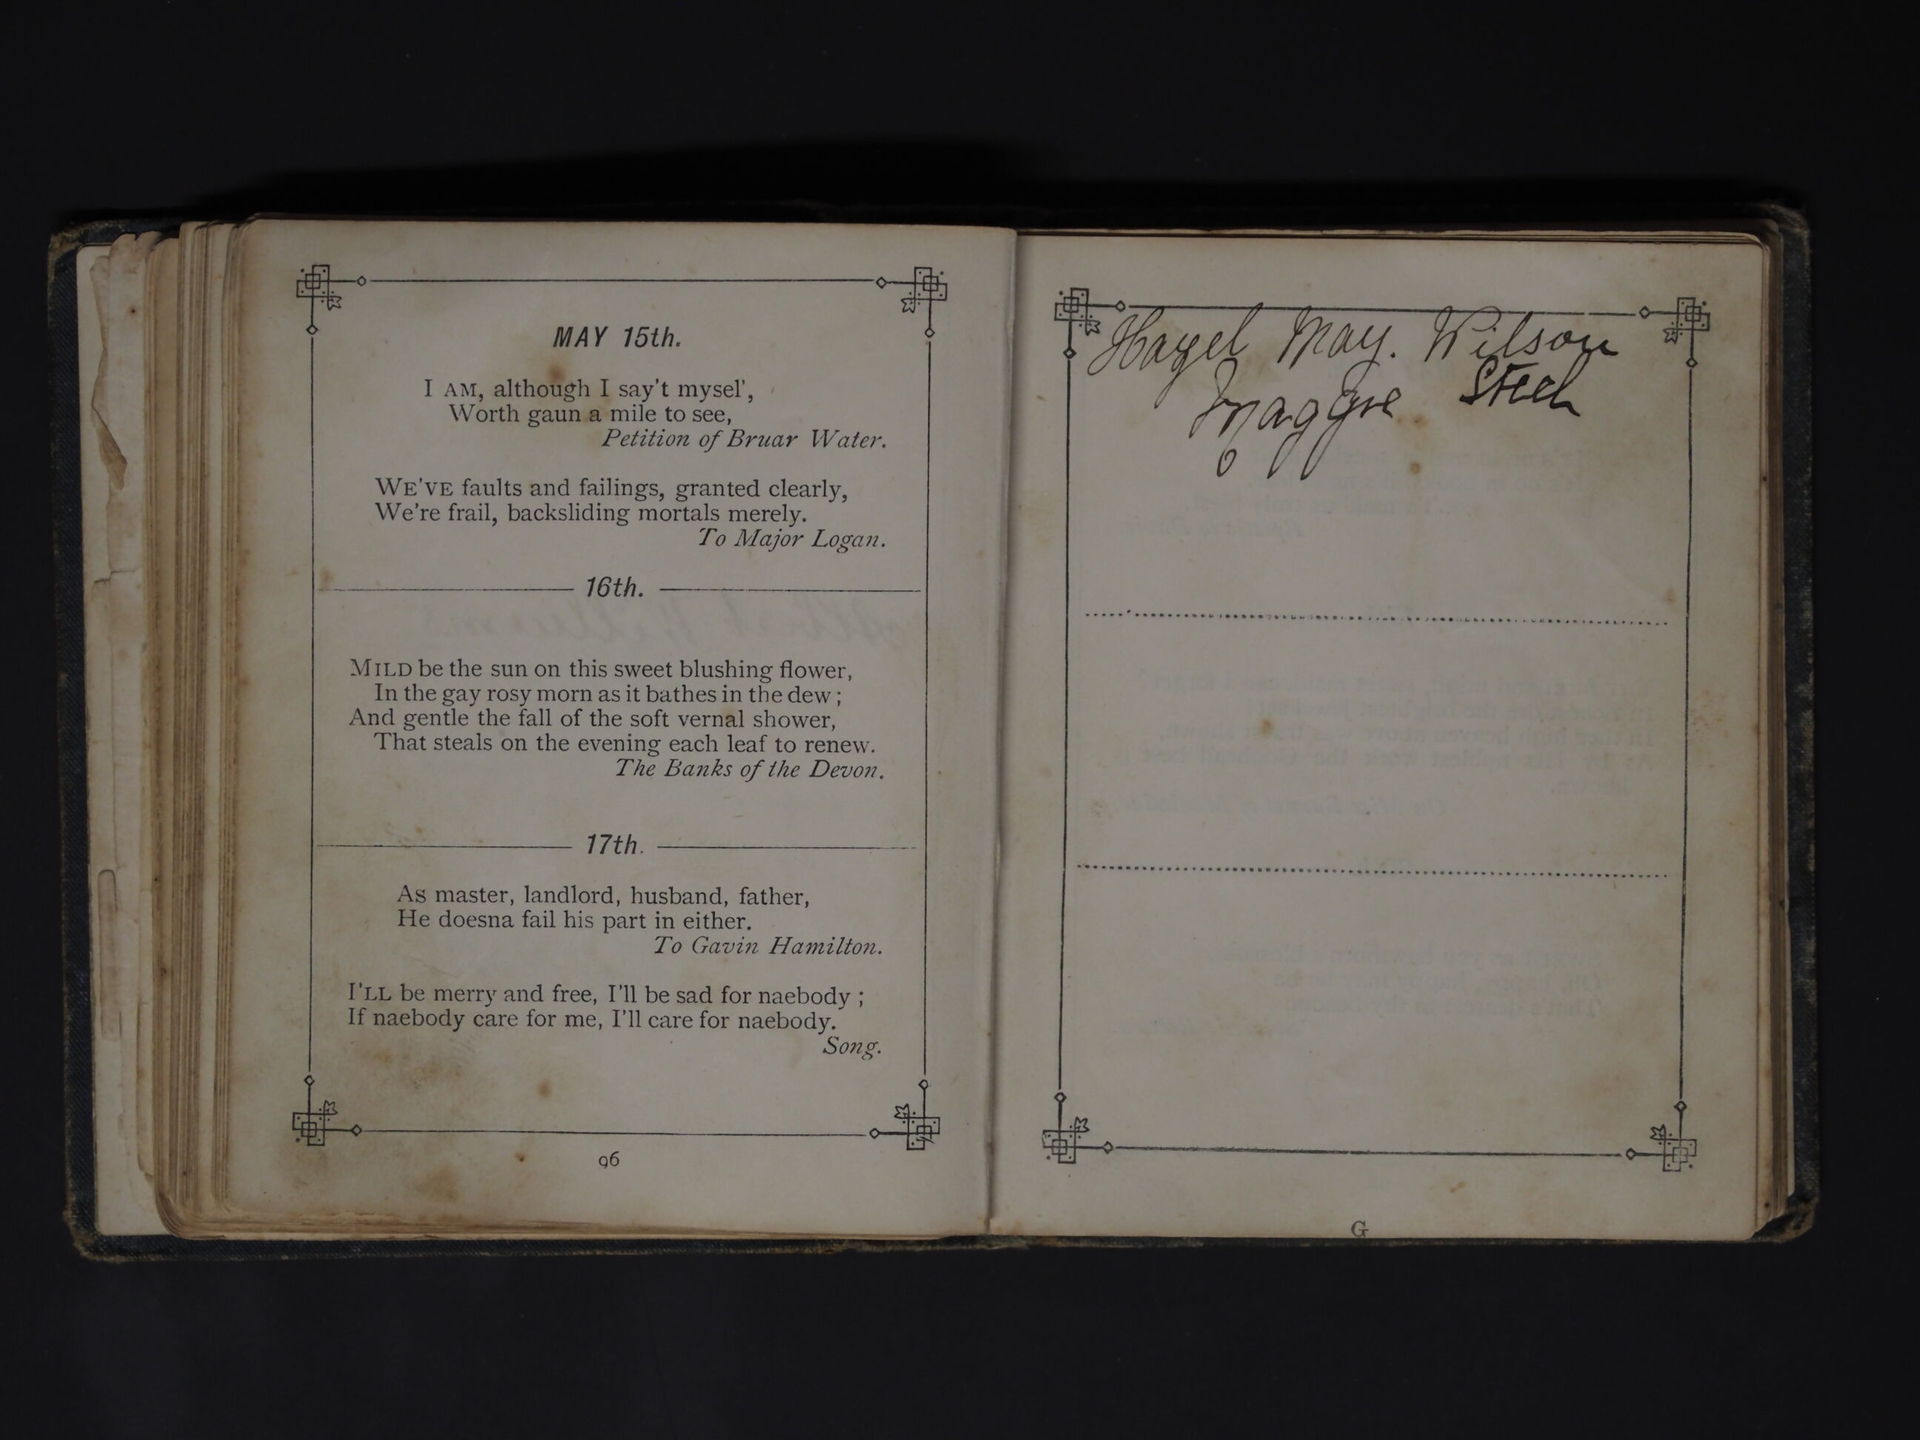 MAY 15th.
I AM, although I say't mysel',
Worth gaun a mile to see,
Petition of Bruar Water.
WE'VE faults and failings, granted clearly,
We're frail, backsliding mortals merely.
To Major Logan.
16th.
MILD be the sun on this sweet blushing flower,
In the gay rosy morn as it bathes in the dew ;
And gentle the fall of the soft vernal shower,
That steals on the evening each leaf to renew.
The Banks of the Devon.
17th.
As master, landlord, husband, father,
He doesna fail his part in either.
To Gavin Hamilton.
I'LL be merry and free, I'll be sad for naebody ;
If naebody care for me, I'll care for naebody.
Song.
96
Hazel May. Wilson
Maggie Steel
G